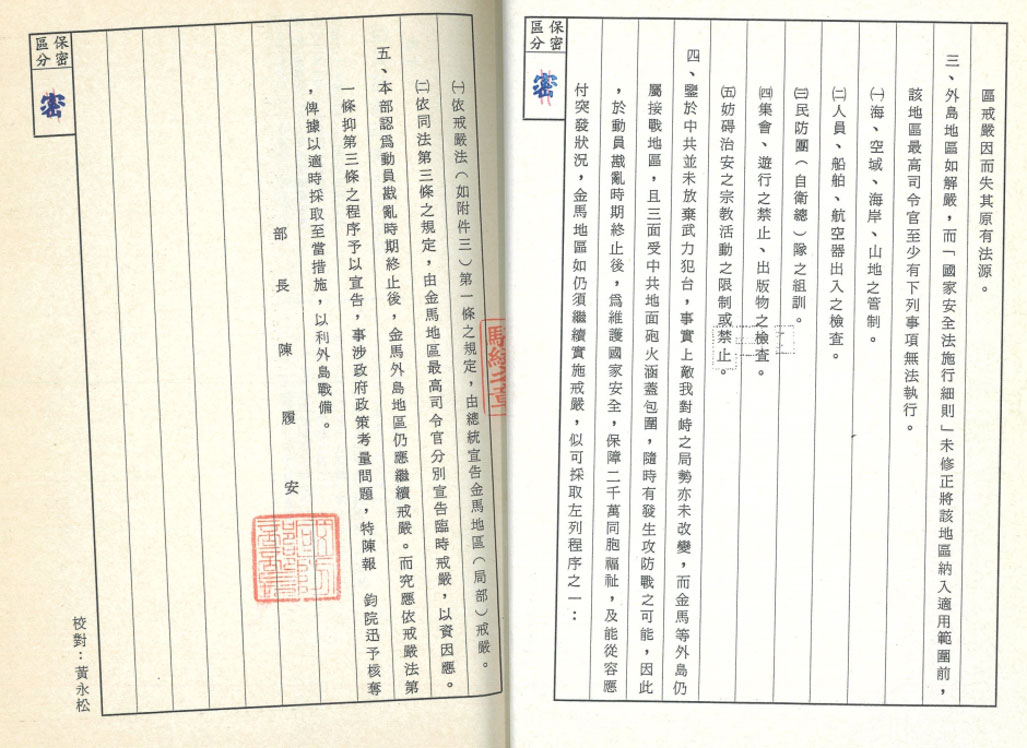 保密區分
密
區戒嚴因而失其原有法源。
三、外島地區如解嚴，而「國家安全法施行細則」未修正將該地區納入適用範圍前，
該地區最高司令官至少有下列事項無法執行。
㈠海、空域、海岸、山地之管制。
㈡人員、船舶、航空器出入之檢查。
㈢民防團（自衛總）隊之組訓。
㈣集會、遊行之禁止、出版物之檢查。
㈤妨碍治安之宗教活動之限制或禁止。
四、鑒於中共並未放棄武力犯台，事實上敵我對峙之局勢亦未改變，而金馬等外島仍
屬接戰地區，且三面受中共地面砲火涵蓋包圍，隨時有發生攻防戰之可能，因此
，於動員戡亂時期終止後，爲維護國家安全，保障二千萬同胞福祉，及能從容應
付突發狀況，金馬地區如仍須繼續實施戒嚴，似可採取左列程序之一：
保密區分
密
㈠依戒嚴法（如附件三）第一條之規定，由總統宣告金馬地區（局部）戒嚴。
㈡依同法第三條之規定，由金馬地區最高司令官分別宣告臨時戒嚴，以資因應。
五、本部認爲動員戡亂時期終止後，金馬外島地區仍應繼續戒嚴。而究應依戒嚴法第
一條抑第三條之程序予以宣告，事涉政府政策考量問題，特陳報　鈞院迅予核奪
，俾據以適時採取至當措施，以利外島戰備。
部長陳履安
校對：黃永松